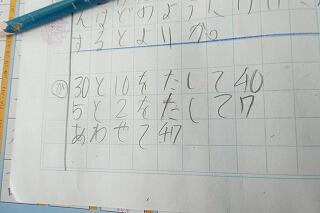 するとよいか。
か 30と10をたして40
5と2をたして7
あわせて47